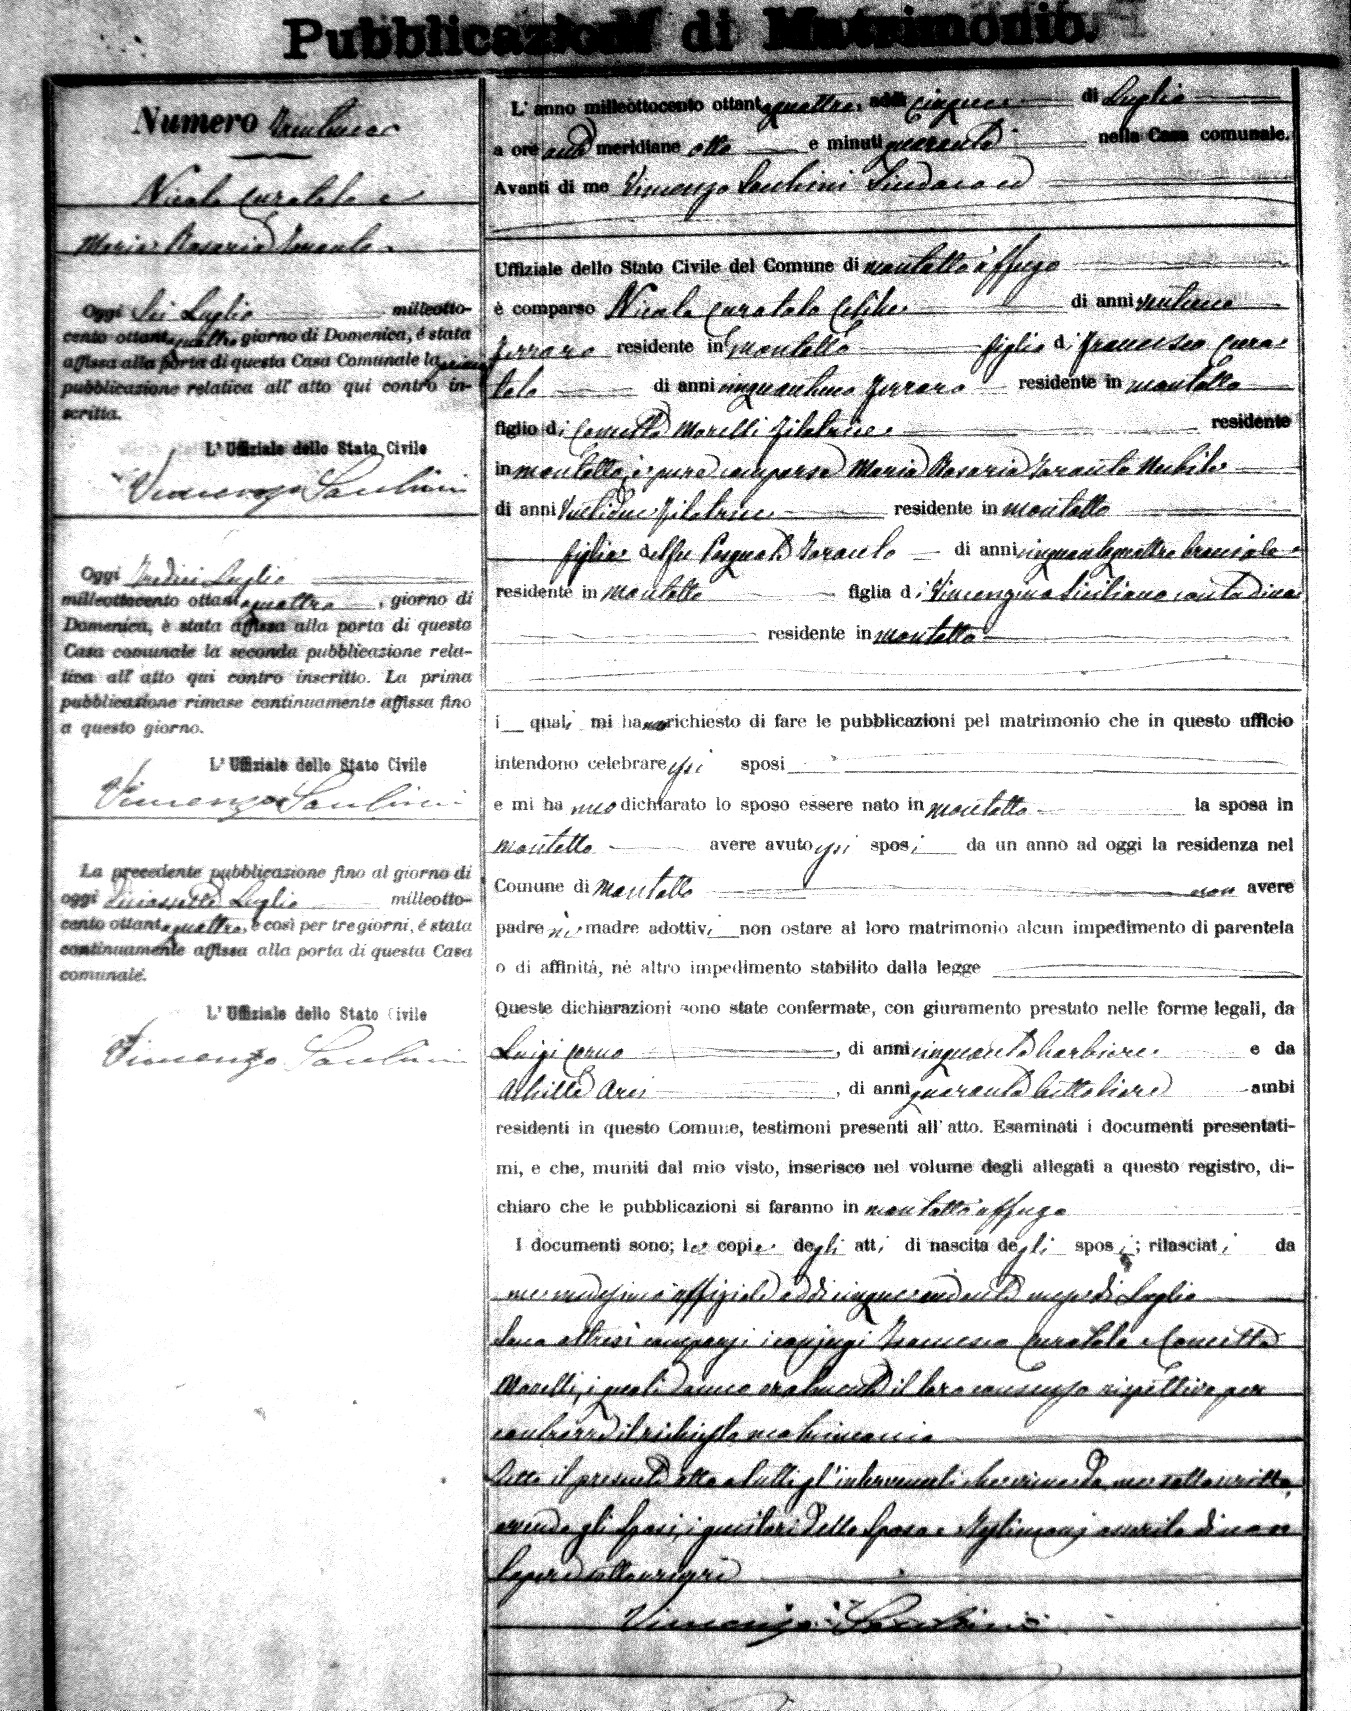 Pubblicazioni di Matrimonio.
Numero
Nicola Curatolo e
Maria Rosaria Taranto
Oggi Sei Luglio milleotto-
cento ottantaquattro giorno di Domenica, é stata
affissa alla porta di questa Casa Comunale la prima
pubblicazione relativa all' atto qui contro in-
scritta.
L'Uffiziale dello Stato Civile
Vincenzo
Oggi Tredici Luglio
milleottocento ottantaquattro, giorno di
Domenica, è stata affissa alla porta di questa
Casa comunale la seconda pubblicazione rela-
tiva all' atto qui contro inscritto. La prima
pubblicazione rimase continuamente affissa fino
a questo giorno.
L'Uffiziale dello Stato Civile
Vincenzo
La precedente pubblicazione fino al giorno di
oggi Diciassette Luglio milleotto-
cento ottantaquattro, e così per tre giorni, é stata
continuamente affissa alla porta di questa Casa
comunale.
L'Uffiziale dello Stato Civile
Vincenzo
L'anno milleottocento ottantaquattro, addì cinque di Luglio
a ore anti meridiane otto e minuti quaranta nella Casa comunale.
Avanti di me Vincenzo Sindaco ed
Uffiziale dello Stato Civile del Comune di Montalto Uffugo
è comparso Nicola Curatolo Celibe di anni
Ferraro residente in Montalto figlio di Francesco Cura-
tolo di anni Ferraro residente in Montalto
figlio di Concetta Morelli filatrice residente
in Montalto, è pure comparsa Maria Rosaria Taranto Nubile
di anni Ventidue filatrice residente in Montalto
figlia del fu Pasquale Taranto di anni cinquantaquattro bracciale
residente in Montalto figlia di Vincenzina Siciliano contadina
residente in Montalto
i quali mi hanno richiesto di fare le pubblicazioni pel matrimonio che in questo ufficio
intendono celebrare essi sposi
e mi hanno dichiarato lo sposo essere nato in Montalto la sposa in
Montalto avere avuto essi sposi da un anno ad oggi la residenza nel
Comune di Montalto non avere
padre nè madre adottivi non ostare al loro matrimonio alcun impedimento di parentela
o di affinità, nè altro impedimento stabilito dalla legge
Queste dichiarazioni sono state confermate, con giuramento prestato nelle forme legali, da
Luigi, di anni cinquanta barbiere e da
Achille, di anni quaranta bettoliere ambi
residenti in questo Comune, testimoni presenti all' atto. Esaminati i documenti presentati-
mi, e che, muniti dal mio visto, inserisco nel volume degli allegati a questo registro, di-
chiaro che le pubblicazioni si faranno in Montalto Uffugo
I documenti sono; le copie degli atti di nascita degli sposi; rilasciati da
me medesimo uffiziale addi cinque andante mese di Luglio
Sono altresì comparsi i conjugi Francesco Curatolo e Concetta
Morelli, i quali danno oralmente il loro consenso rispettivo per
contrarre il richiesto matrimonio
Letto il presente atto a tutti gl'intervenuti che viene da me sottoscritto,
avendo gli Sposi, i genitori dello Sposo e Testimoni asserito di non
sapere sottoscrivere
Vincenzo